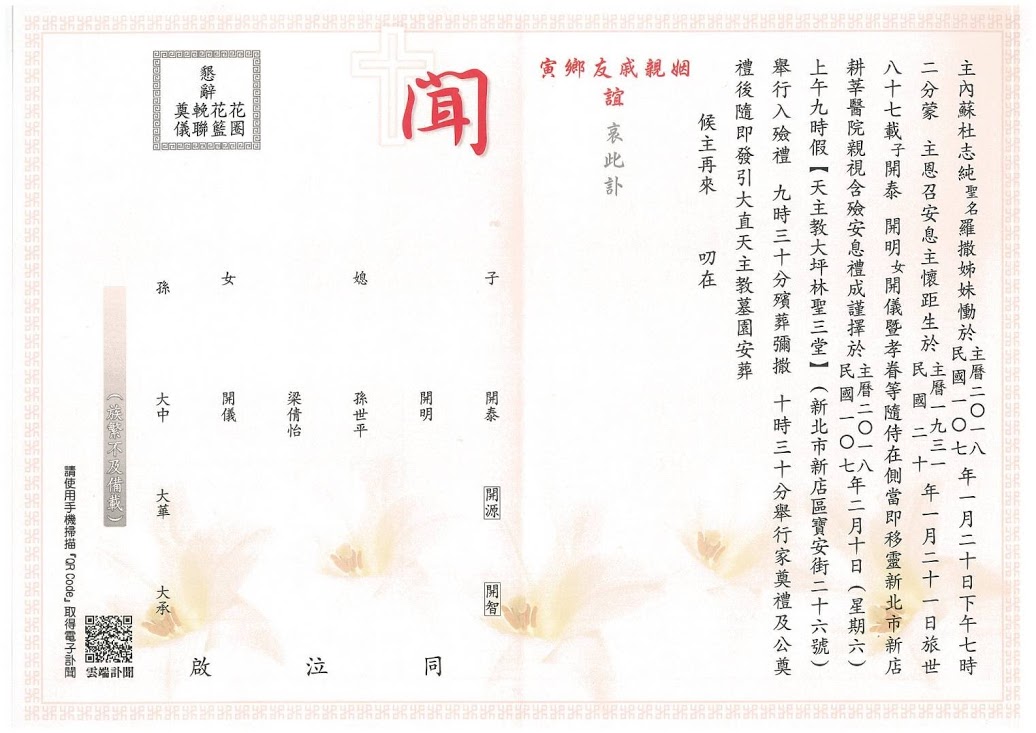 主內蘇杜志純聖名羅撒姊妹慟於主曆二〇一八民國一〇七年一月二十日下午七時
二分蒙　主恩召安息主懷距生於主曆一九三一民國二十年一月二十一日旅世
八十七載子開泰　開明女開儀暨孝眷等隨侍在側當即移靈新北市新店
耕莘醫院親視含殮安息禮成謹擇於主曆二〇一八民國一〇七年二月十日（星期六）
上午九時假【天主教大坪林聖三堂】（新北市新店區寶安街二十六號）
舉行入殮禮　九時三十分殯葬彌撒　十時三十分舉行家奠禮及公奠
禮後隨即發引大直天主教墓園安葬
候主再來　叨在
姻親戚友鄉寅
誼　哀此訃
聞
懇辭
花圈
花籃
輓聯
奠儀
子　開泰　開源　開智
開明
媳　孫世平
梁倩怡
女　開儀
孫　大中　大華　大承
同　泣　啟
（族繁不及備載）
請使用手機掃描『QR Code』取得電子訃聞
雲端訃聞